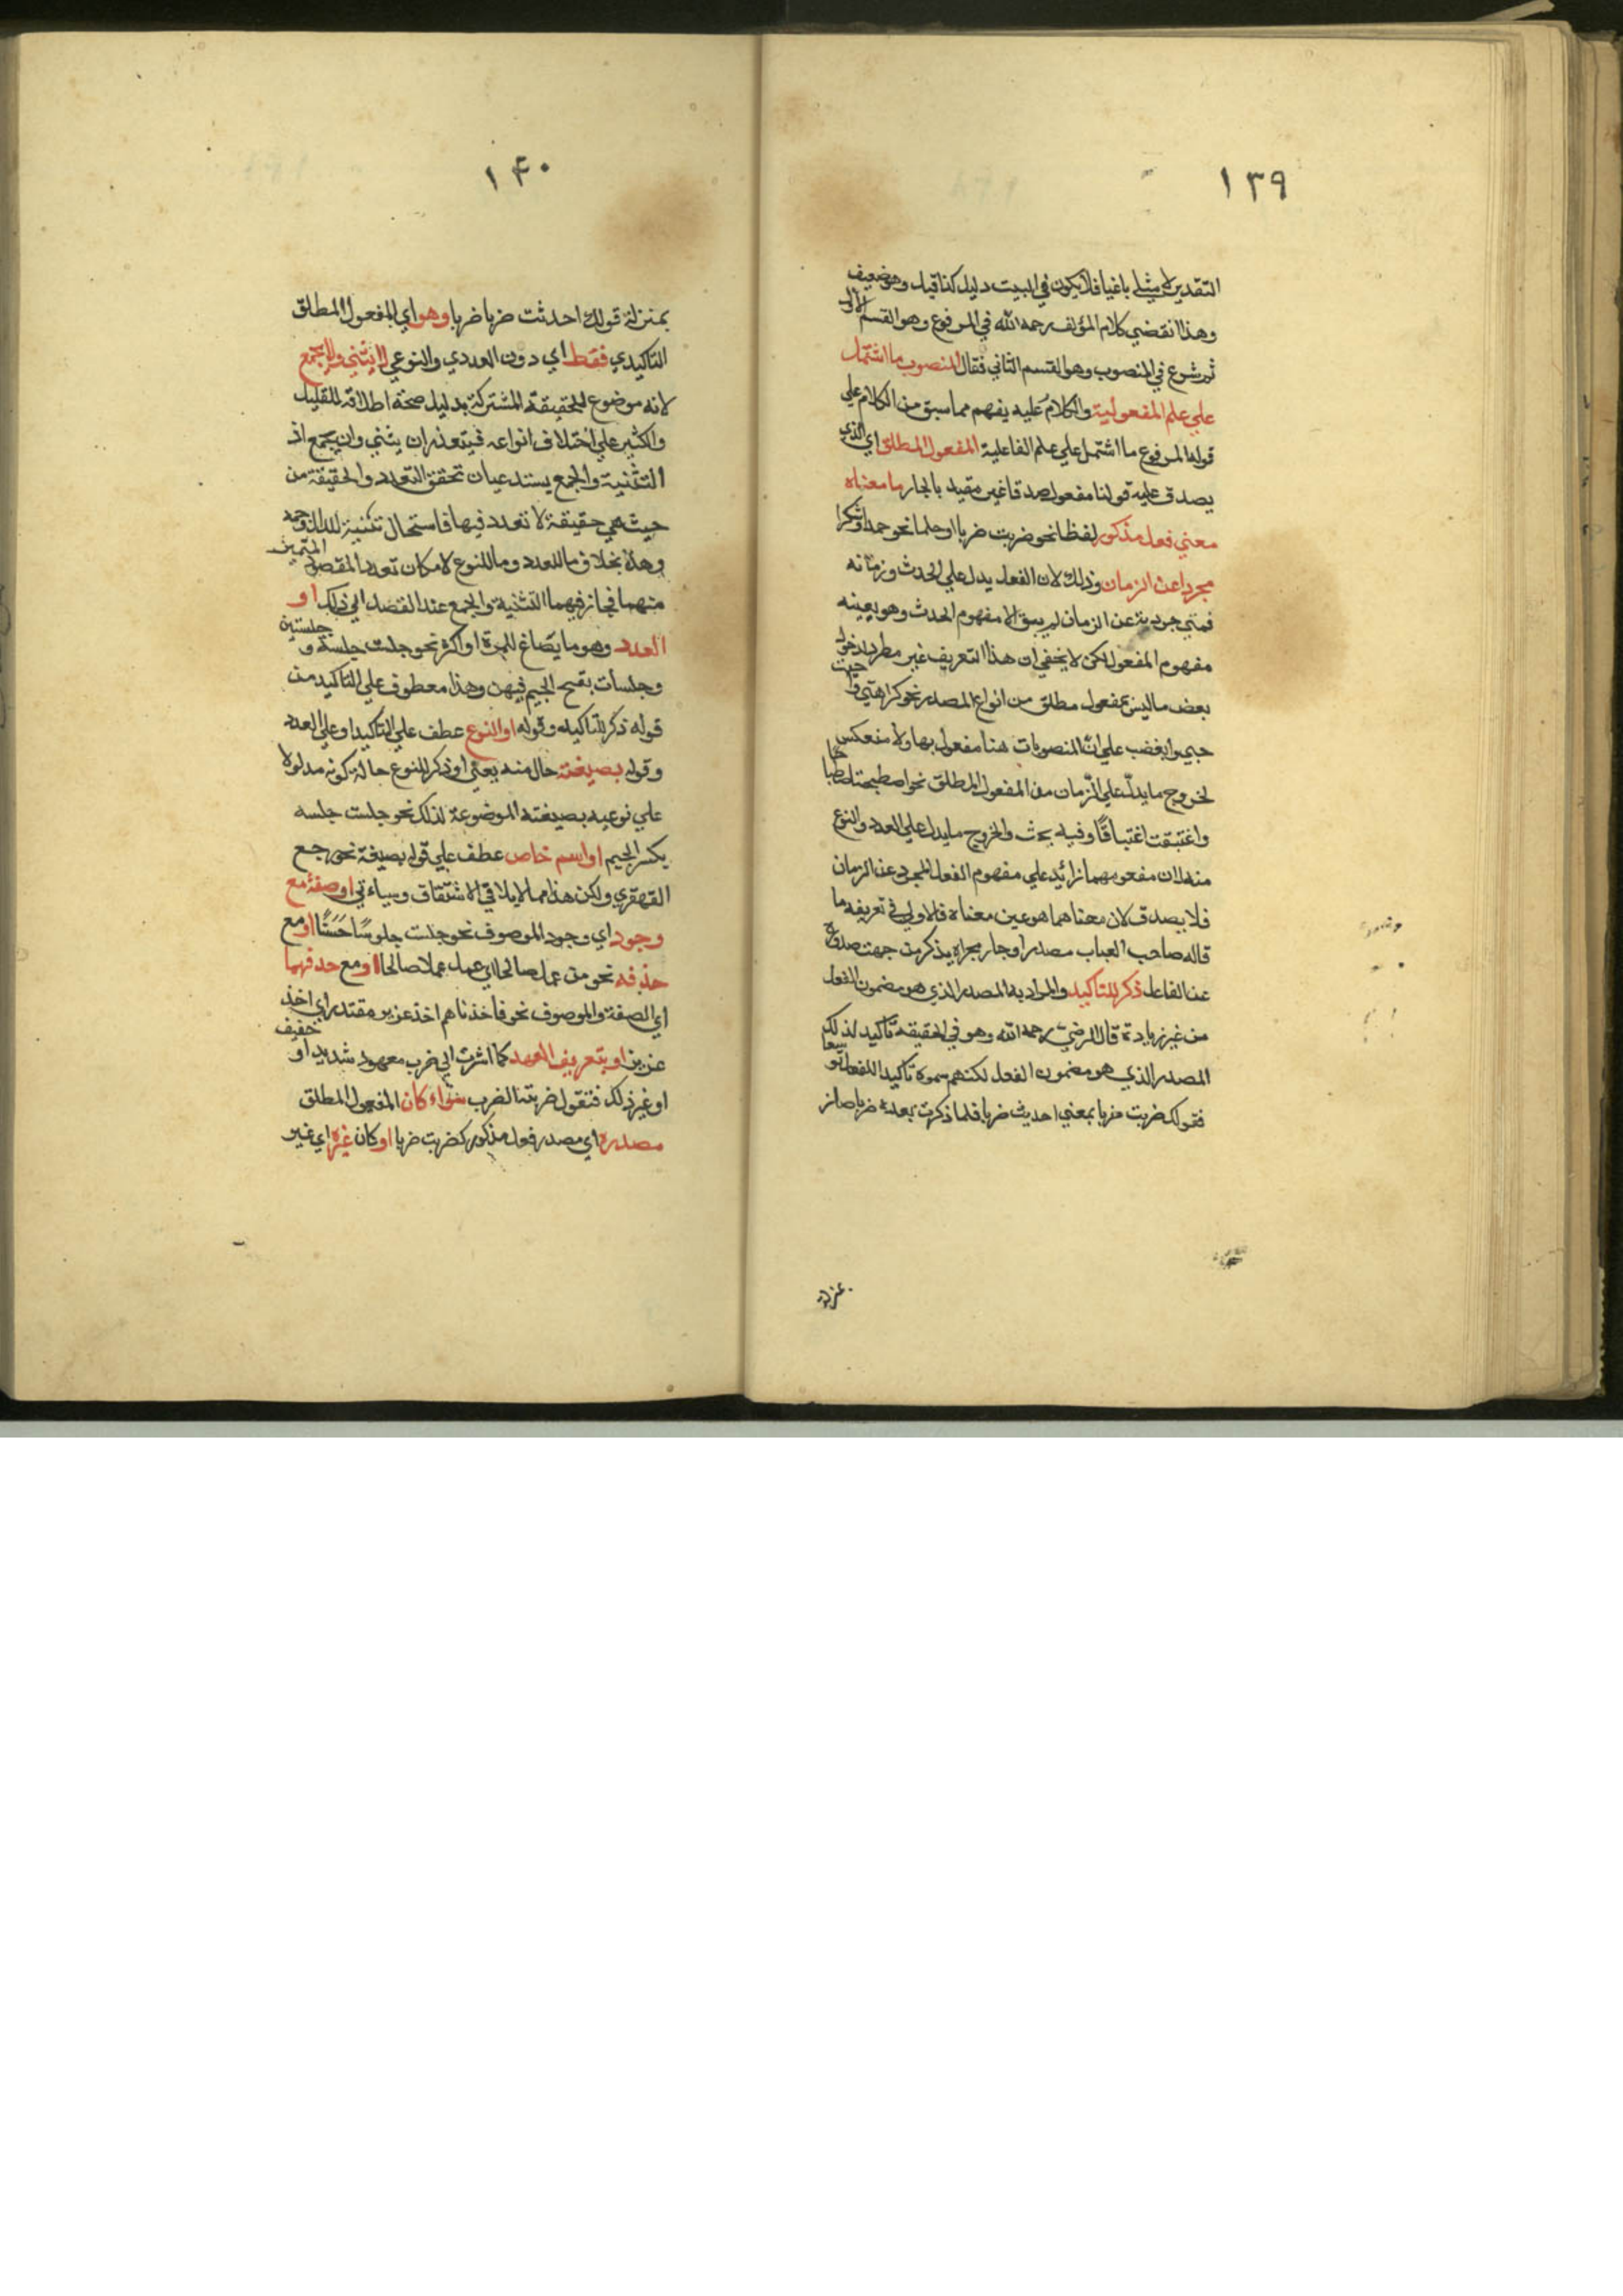 ١٣٩
التقدير لا مثلي باغيا فلا يكون في البيت دليل كذا قيل وهو ضعيف
وهذا انقضي كلام المؤلف رحمه الله في المرفوع وهو القسم الاول
ثم شرع في المنصوب وهو القسم الثاني فقال المنصوب ما اشتمل
علي علم المفعولية والكلام عليه يفهم مما سبق من الكلام علي
قوله المرفوع ما اشتمل علي علم الفاعلية المفعول المطلق اي الذي
يصدق عليه قولنا مفعول صدقا غير مقيد بالجار ما معناه
معني فعل مذكور لفظا نحو ضربت ضربا او حكما نحو حمدا وشكرا
مجردا عن الزمان وذلك لان الفعل يدل علي الحدث وزمانه
فمتي جردته عن الزمان لم يبق الا مفهوم الحدث وهو بعينه
مفهوم المفعول لكن لا يخفي ان هذا التعريف غير مطرد لدخول
بعض ما ليس بمفعول مطلق من انواع المصدر نحو كراهتي واحببت
حبي وابغضب علي ان المنصوبات هنا مفعول بها ولا منعكس
لخروج ما يدل علي الزمان من المفعول المطلق نحو اصطبحت اصطباحا
واغتبقت اغتباقا وفيه بحث والخروج ما يدل علي العدد والنوع
منه لان مفعومهما زائد علي مفهوم الفعل المجرد عن الزمان
فلا يصدق لان معناهما هو عين معناه فالاولي في تعريفه ما
قاله صاحب العباب مصدر او جار مجراه يذكر من جهت صدوره
عن الفاعل ذكر للتاكيد والمراد به المصدر الذي هو مضمون الفعل
من غير زيادة قال الرضي رحمه الله وهو في الحقيقة تاكيد لذلك
المصدر الذي هو مضمون الفعل لكنهم سموه تاكيدا للفعل توسعا
فقولك ضربت ضربا بمعني احديث ضربا فلما ذكرت بعده ضربا صار
١۴٠
بمنزلة قولك احدثت ضربا ضربا وهو اي المفعول المطلق
التاكيدي فقط اي دون العددي والنوعي لا يثني ولا يجمع
لانه موضوع للحقيقة المشتركة بدليل صحة اطلاقه للقليل
والكثير علي اختلاف انواعه فيتعذر ان يثني وان يجمع اذ
التثنية والجمع يستدعيان تحقق التعدد والحقيقة من
حيث هي حقيقة لا تعدد فيها فاستحال تثنية لذلك وجمعه
وهذا بخلاف ما للعدد وما للنوع لامكان تعدد المقصود
منهما فجاز فيهما التثنية والجمع عند القصد الي ذلك او
العدد وهو ما يصاغ للمرة او اكثر نحو جلست جلسة و جلستين
وجلسات بفتح الجيم فيهن وهذا معطوف علي التاكيد من
قوله ذكر للتاكيد وقوله او النوع عطف علي التاكيد او علي العدد
وقوله بصيغته حال منه يعني او ذكر للنوع حالة كونه مدلولا
علي نوعيه بصيغته الموضوعة لذلك نحو جلست جلسه
بكسر الجيم او اسم خاص عطف علي قوله بصيغة نحو رجع
القهقري ولكن هذا مما لا يلاقي الاشتقاق وسياءتي او صفة مع
وجود اي وجود الموصوف نحو جلست جلوسا حسنا او مع
حذفه نحو من عمل صالحا اي عمل عملا صالحا او مع حدفهما
اي الصفة والموصوف نحو فاخذناهم اخذ عزيز مقتدر اي اخذ
عزيز او بتعريف العهد كما اشرت الي ضرب معهود شديد او خفيف
او غير ذلك فتقول ضربتنا لضرب سواء كان المفعول المطلق
مصدره اي مصدر فعل مذكور كضربت ضربا او كان غيره اي غير